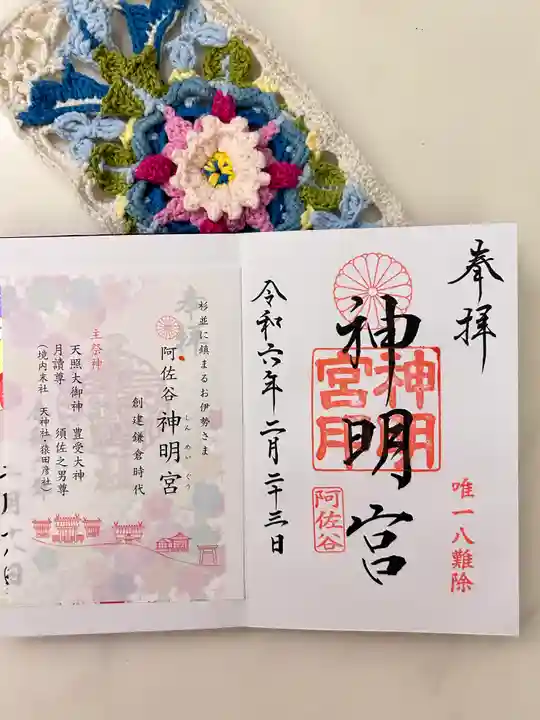 奉拝
神明宮
神明宮
阿佐谷
唯一八難除
令和六年二月二十三日
杉並に鎮まるお伊勢さま
阿佐谷 神明宮
しんめいぐう
創建鎌倉時代
主祭神
天照大御神 豊受大神
月讀尊 須佐之男尊
(境内末社 天神社・猿田彦社)